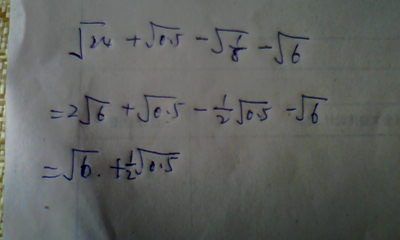 √24 + √0.5 - √(1/8) - √6
= 2√6 + √0.5 - 1/2√0.5 - √6
= √6. + 1/2√0.5